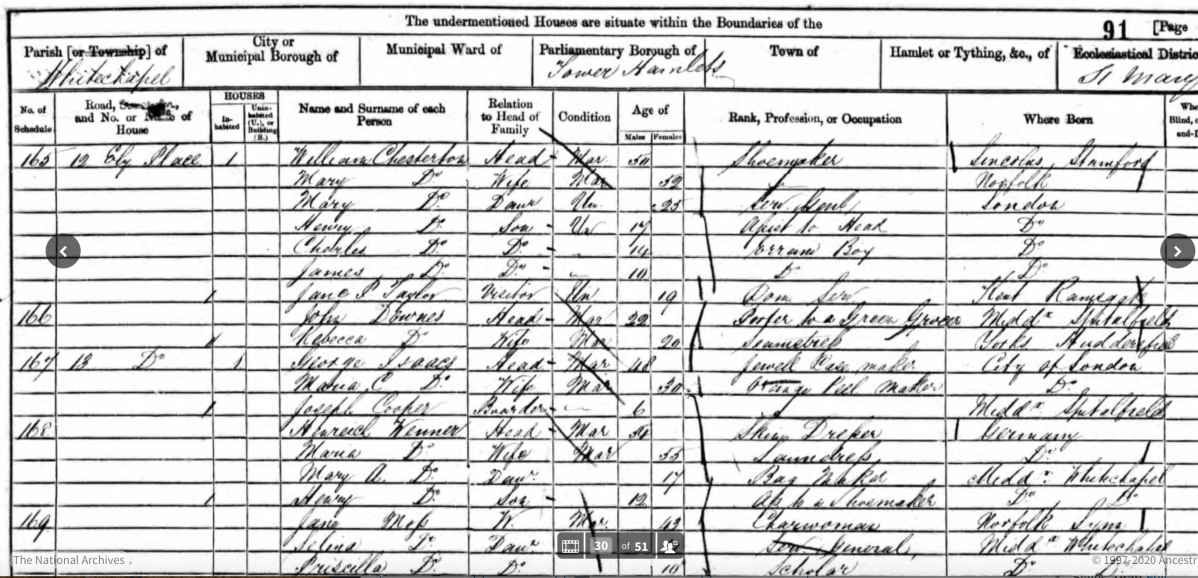 The undermentioned Houses are situate within the Boundaries of the
91 [Page
Parish [or Township] of
Whitechapel
City or Municipal Borough of
Municipal Ward of
Parliamentary Borough of
Tower Hamlets
Town of
Hamlet or Tything, &c., of
Ecclesiastical Distric
St Mary
No. of Schedule
Road, and No. or of House
HOUSES
In-habited
Unin-habited (U.), or Building (B.)
Name and Surname of each Person
Relation to Head of Family
Condition
Age of
Males
Females
Rank, Profession, or Occupation
Where Born
Whe
Blind,
and-
165 12 Ely Place 1 William Chesterton Head Mar 50 Shoemaker Lincolns, Stamford
Mary Do Wife Mar 52 Norfolk
Mary Do Daur Un 25 London
Henry Do Son Un 17 Apist to Head Do
Charles Do Do 14 Errand Boy Do
James Do Do 10 Do Do
Jane P Taylor Visitor Un 19 Dom Ser Kent Ramsgate
166 John Downes Head Mar 22 Porter to a Green Grocer Middx Spitalfields
Rebecca Do Wife Mar 20 Yorks Huddersfield
167 13 Do 1 George Isaacs Head Mar 48 Jewell Case maker City of London
Maria C. Do Wife Mar 30 Orange Peel maker Do
Joseph Cooper Boarder 6 Middx Spitalfield
168 Wenner Head Mar 54 Skin Dreper Germany
Maria Do Wife Mar 55 Laundress Do
Mary A. Do Daur 17 Bag Maker Middx Whitechapel
Henry Do Son 12 Ap to a Shoemaker Do Do
169 Jane Moss W. Mar 42 Charwoman Norfolk Lynn
Selina Do Daur Ser General, Middx Whitechapel
Priscilla Do Do 10 Scholar Do Do
30 of 51
The National Archives
© 1997-2020 Ancestr